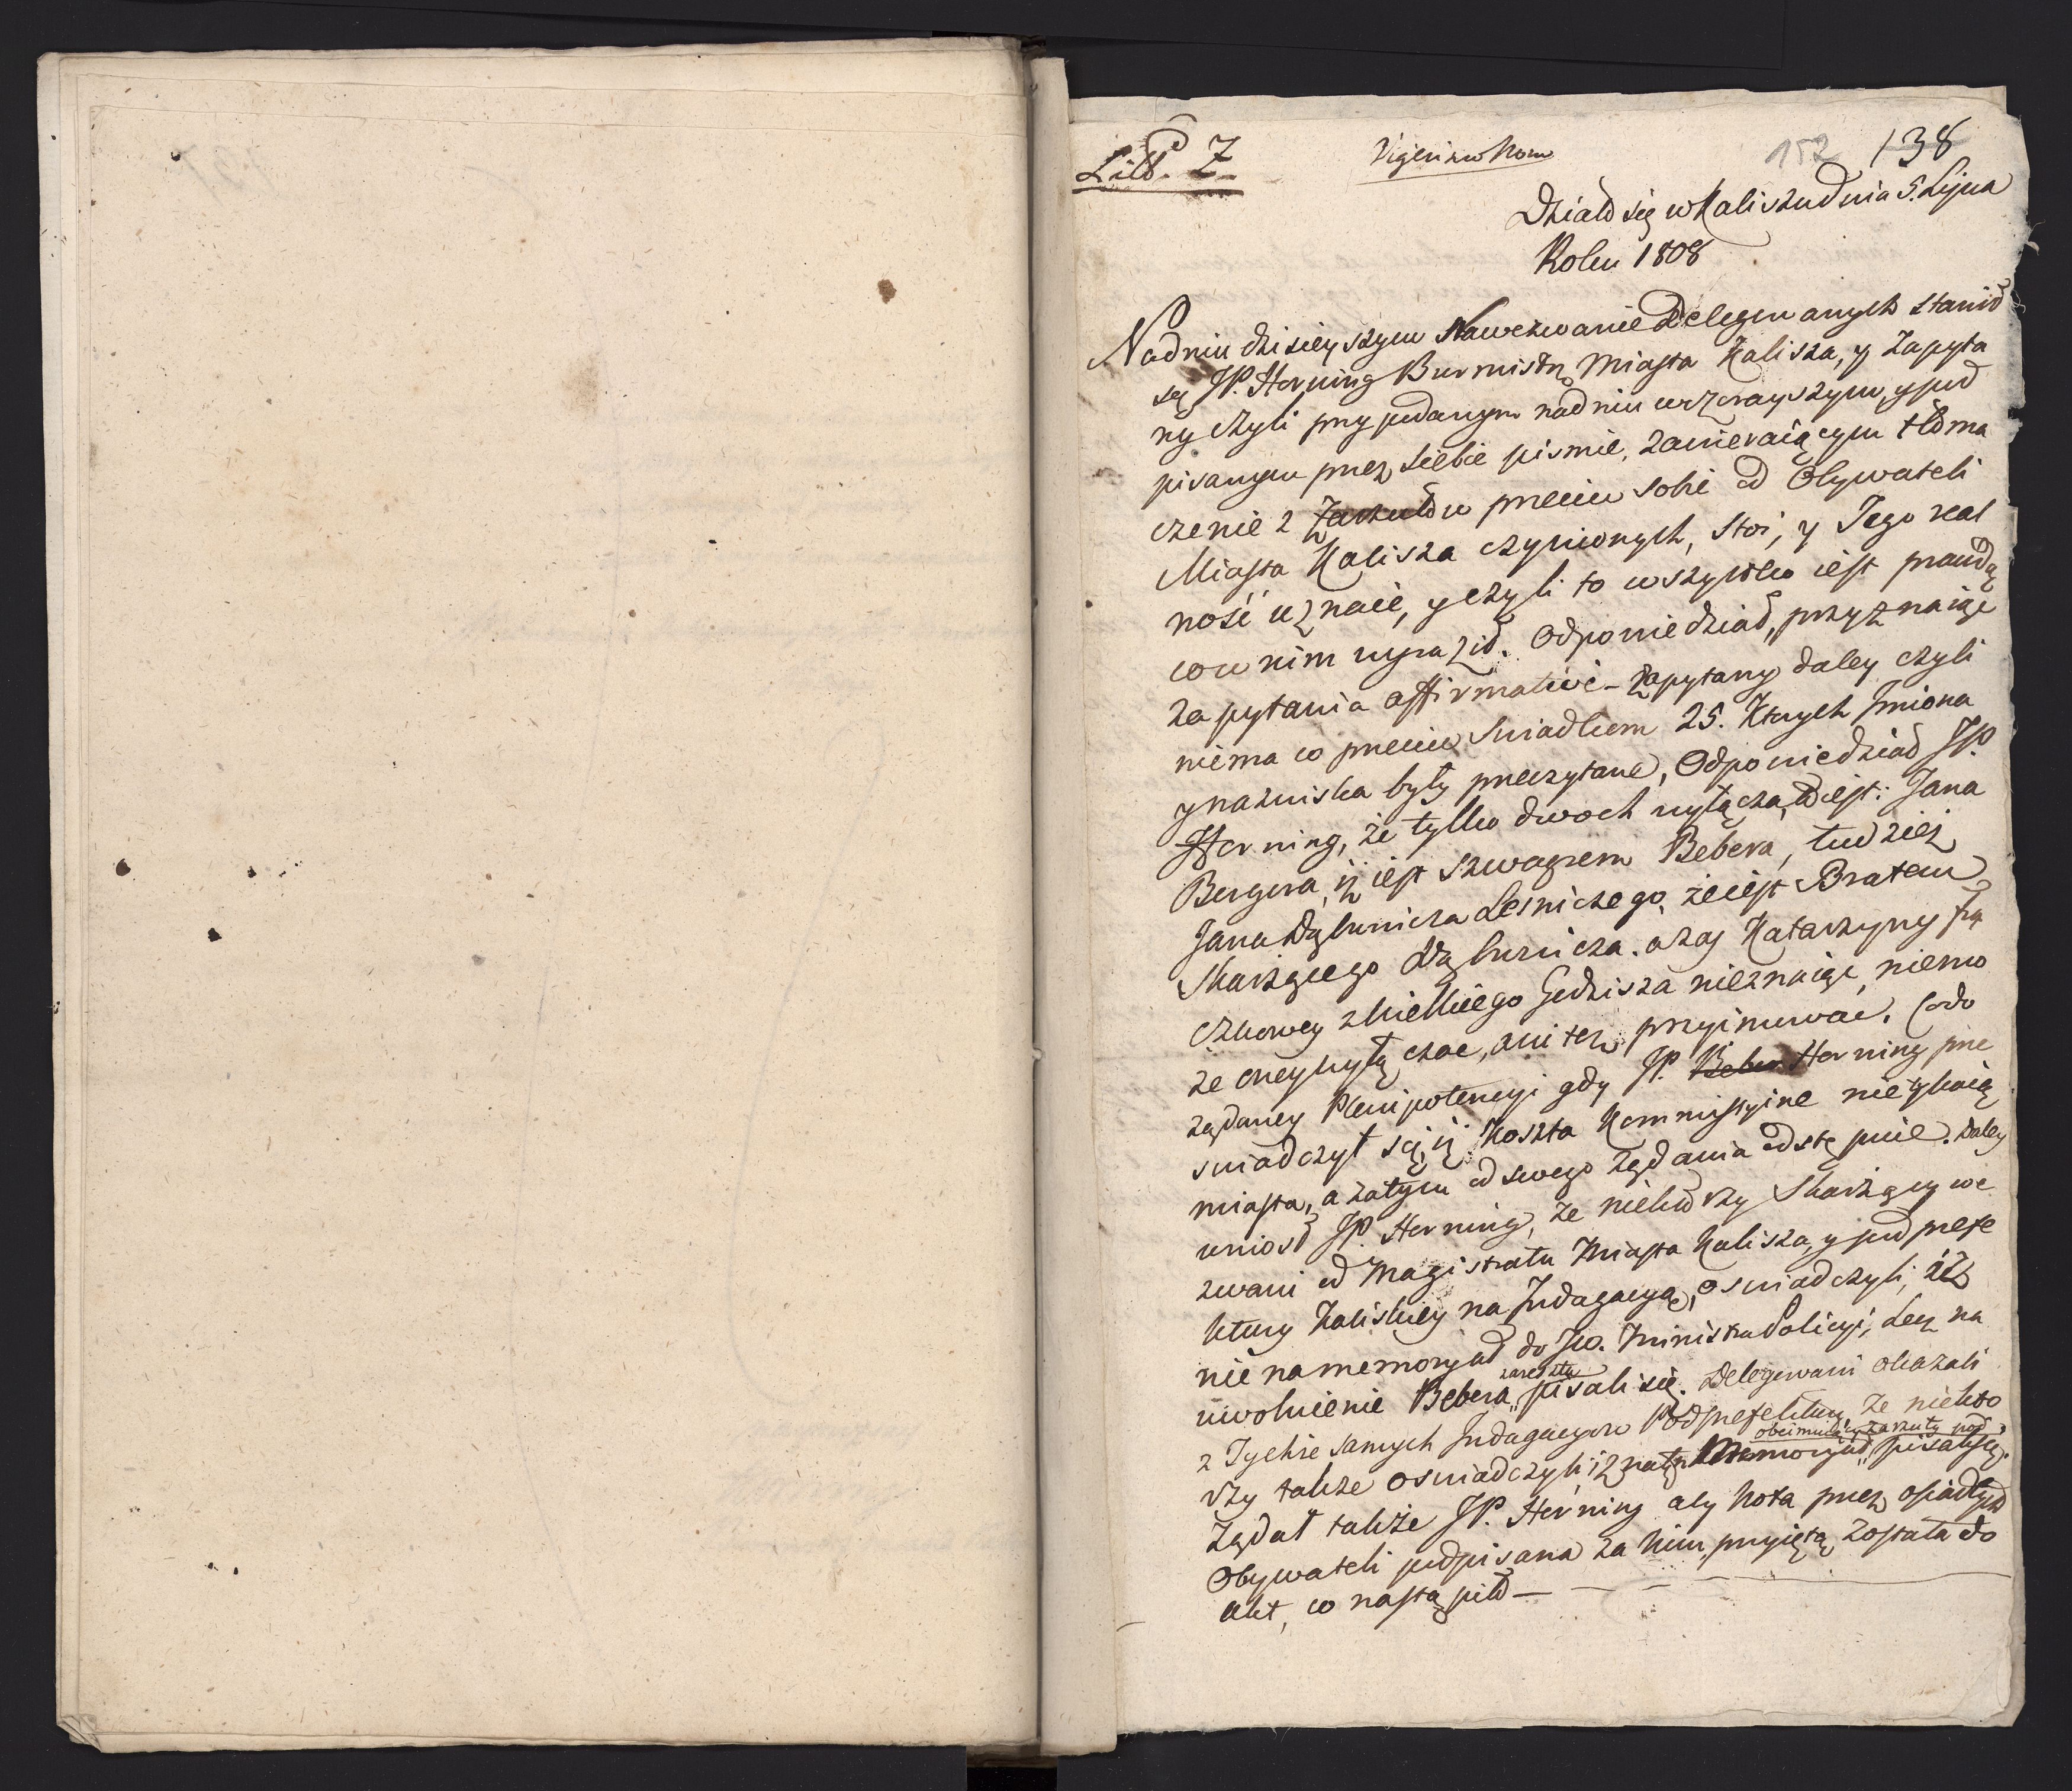 Litt. Z
152 138
Działo się w Kaliszu Dnia 5. Lipca
Roku 1808
Na dniu dzisieyszym Na wezwanie Delegowanych stanił
się JP. Horning Burmistrz Miasta Kalisza, y zapyta
ny czyli przy podanym na dniu wczorayszym, y pod
pisanym przez siebie pismie, zawieraiącym tłoma
czenie z Zarzutów przeciw sobie od Obywateli
Miasta Kalisza czynionych, stoi, y Jego real
ność uznaie, y czyli to wszystko iest prawdą
co w nim wyraził. Odpowiedział, przyznaiąc
zapytania affirmative – zapytany daley czyli
niema co przeciw Swiadkom 25. Ktorych Jmiona
y nazwiska były przeczytane, Odpowiedział JP.
Horning, że tylko dwoch wyłącza, to iest: Jana
Bergera, iż iest szwagrem Bebera, tudzież
Jana Dąbrowicza Lesniczego, że iest Bratem
Skarżącego Dąbrowicza. a zaś Katarzyny Frą
czkowey z Wielkiego Gedzisza nieznaiąc, niemo
że oney wyłączac, ani też przyimować. Co do
żądaney Plenipotencyi gdy JP. Horning prze
swiadczył się, iż Koszta Kommissyine nie tykaią
miasta, a zatym od swego żądania odstępuie. Daley
wniosł JP. Horning, że niektorzy Skarżący we
zwani od Magistratu Miasta Kalisza, y podprefe
ktury Kaliskiey na Indagacyą, oswiadczyli, iż
nie na memoryał do JW. Ministra Policyi, Lecz na
uwolnienie Bebera z aresztu pisali się. Delegowani okazali
z Tychże samych Indagacyow Podprefektury, że niekto
rzy także oswiadczyli, iż na ten Memoryał obeimuiący zarzuty pod pisali się.
Żądał także JP. Horning aby Nota przez osiadłych
Obywateli podpisana za Nim, przyiętą została do
Akt, co nastąpiło —